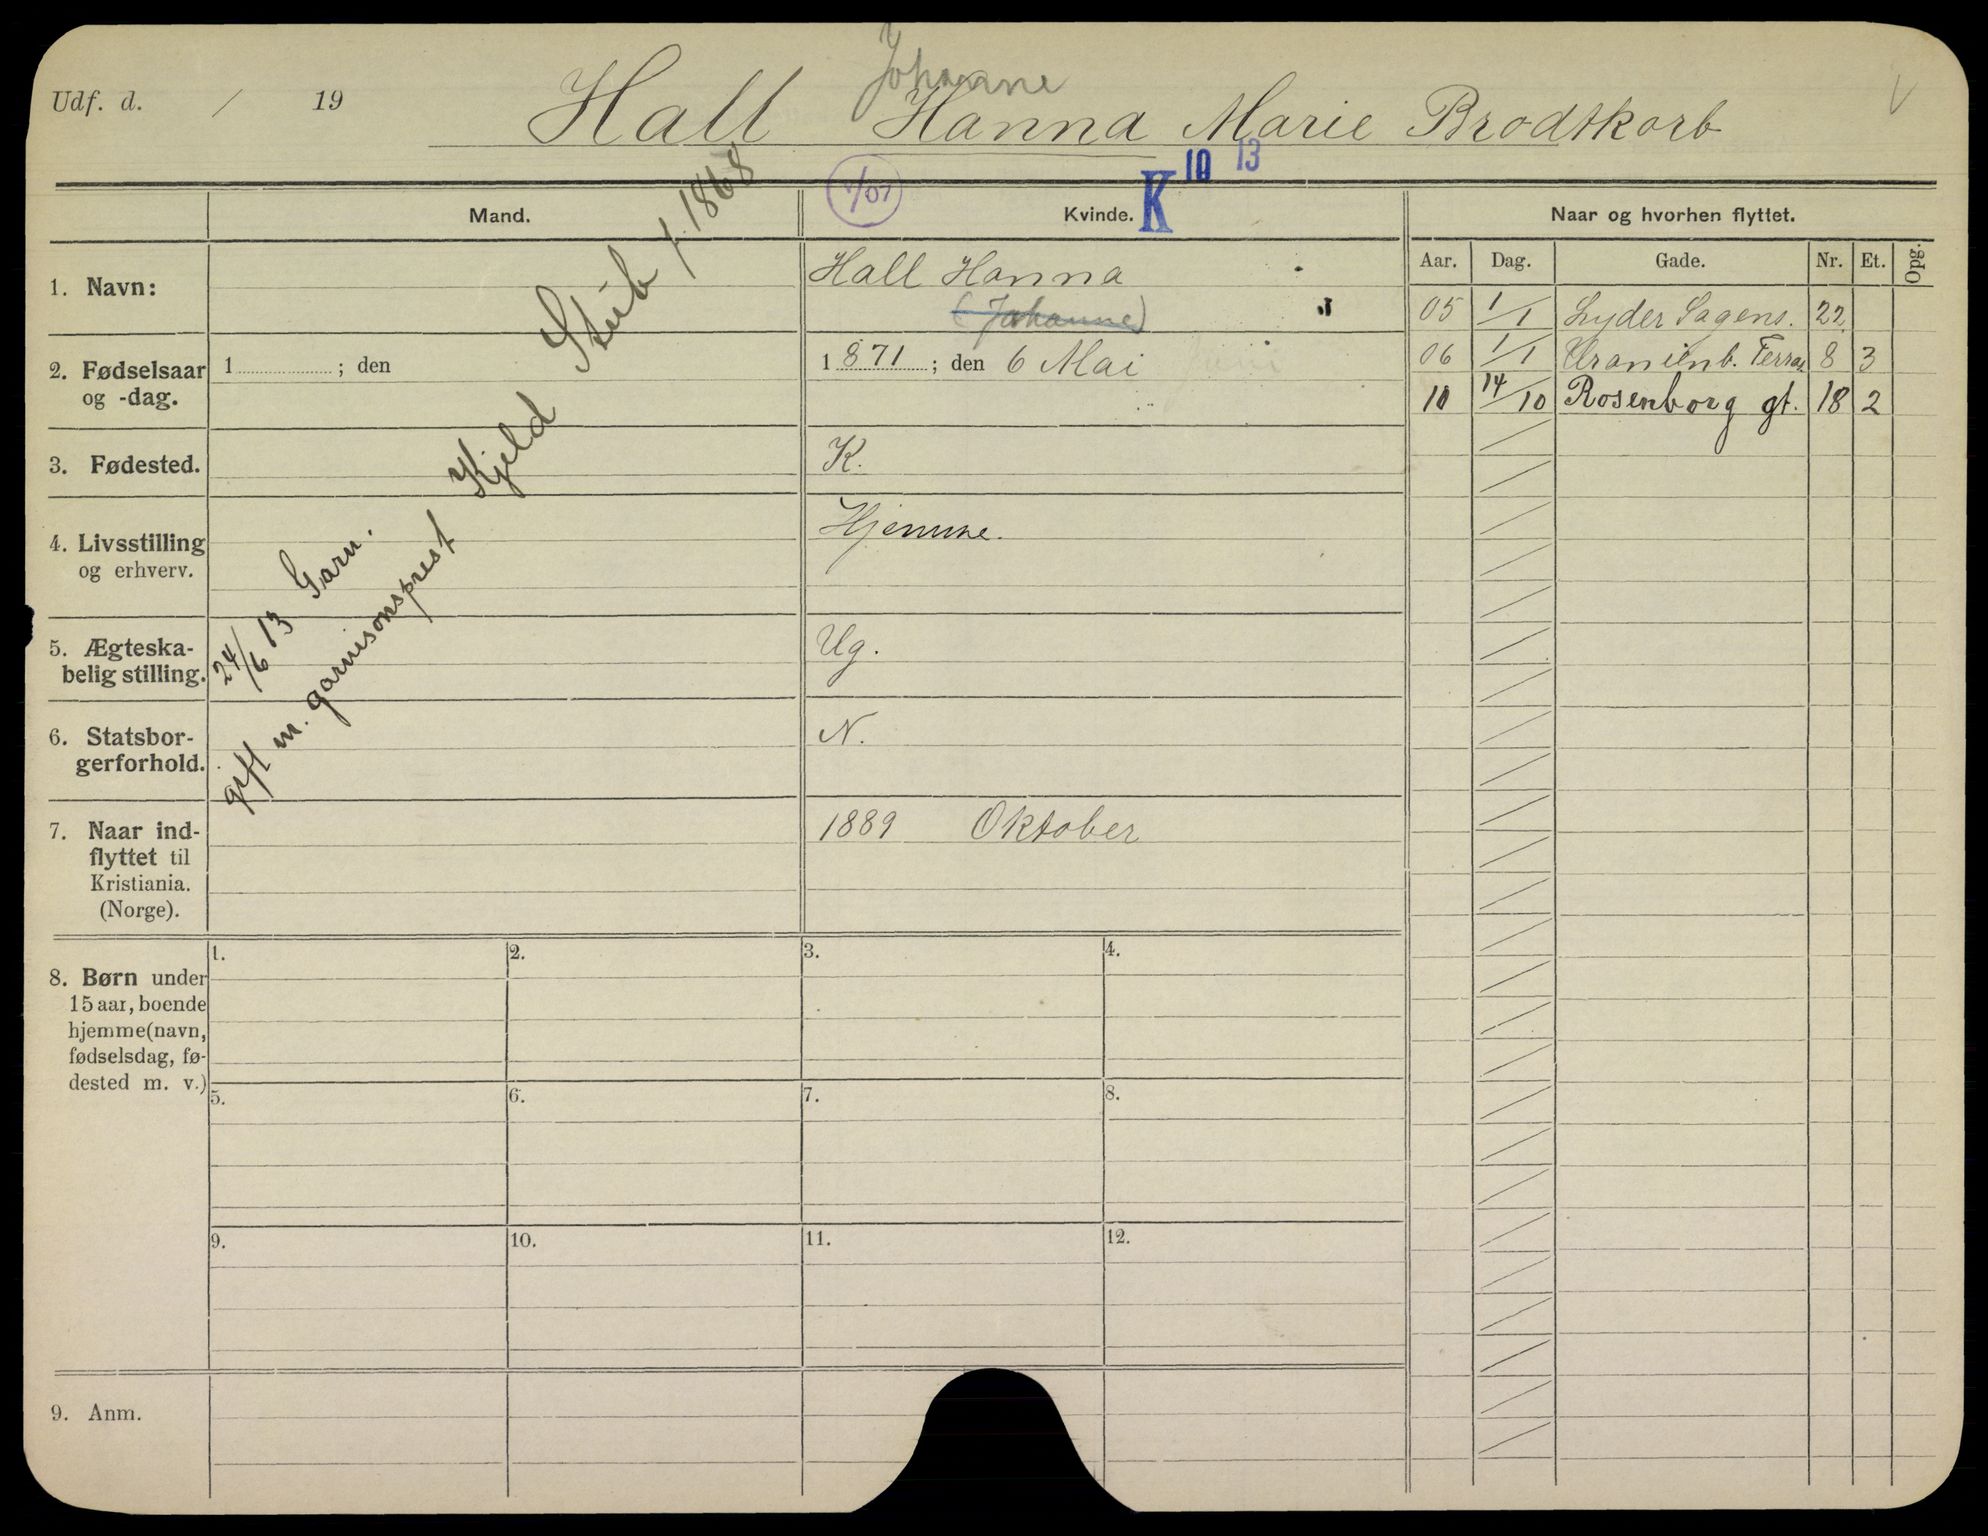 Johanne
Udf. d. / 19
Hall Hanna Marie Brodtkorb
1/07
K 10 13
Mand.
Kvinde.
Naar og hvorhen flyttet.
Aar. Dag. Gade. Nr. Et. Opg.
05 1/1 Lyder Sagens. 22
06 1/1 Uranienb. Terras. 8 3
10 14/10 Rosenborg gt. 18 2
1. Navn:
Hall Hanna
(Johanne)
2. Fødselsaar
og -dag.
1 ; den
1 871 ; den 6 Mai Juni
3. Fødested.
K.
4. Livsstilling
og erhverv.
Hjemme.
5. Ægteska-
belig stilling.
Ug.
6. Statsbor-
gerforhold.
N.
7. Naar ind-
flyttet til
Kristiania.
(Norge).
1889 Oktober
24/6 13 Garn.
gift m. garnisonsprest Kjeld Stub f. 1868
8. Børn under
15 aar, boende
hjemme (navn,
fødselsdag, fø-
dested m. v.)
1. 2. 3. 4.
5. 6. 7. 8.
9. 10. 11. 12.
9. Anm.